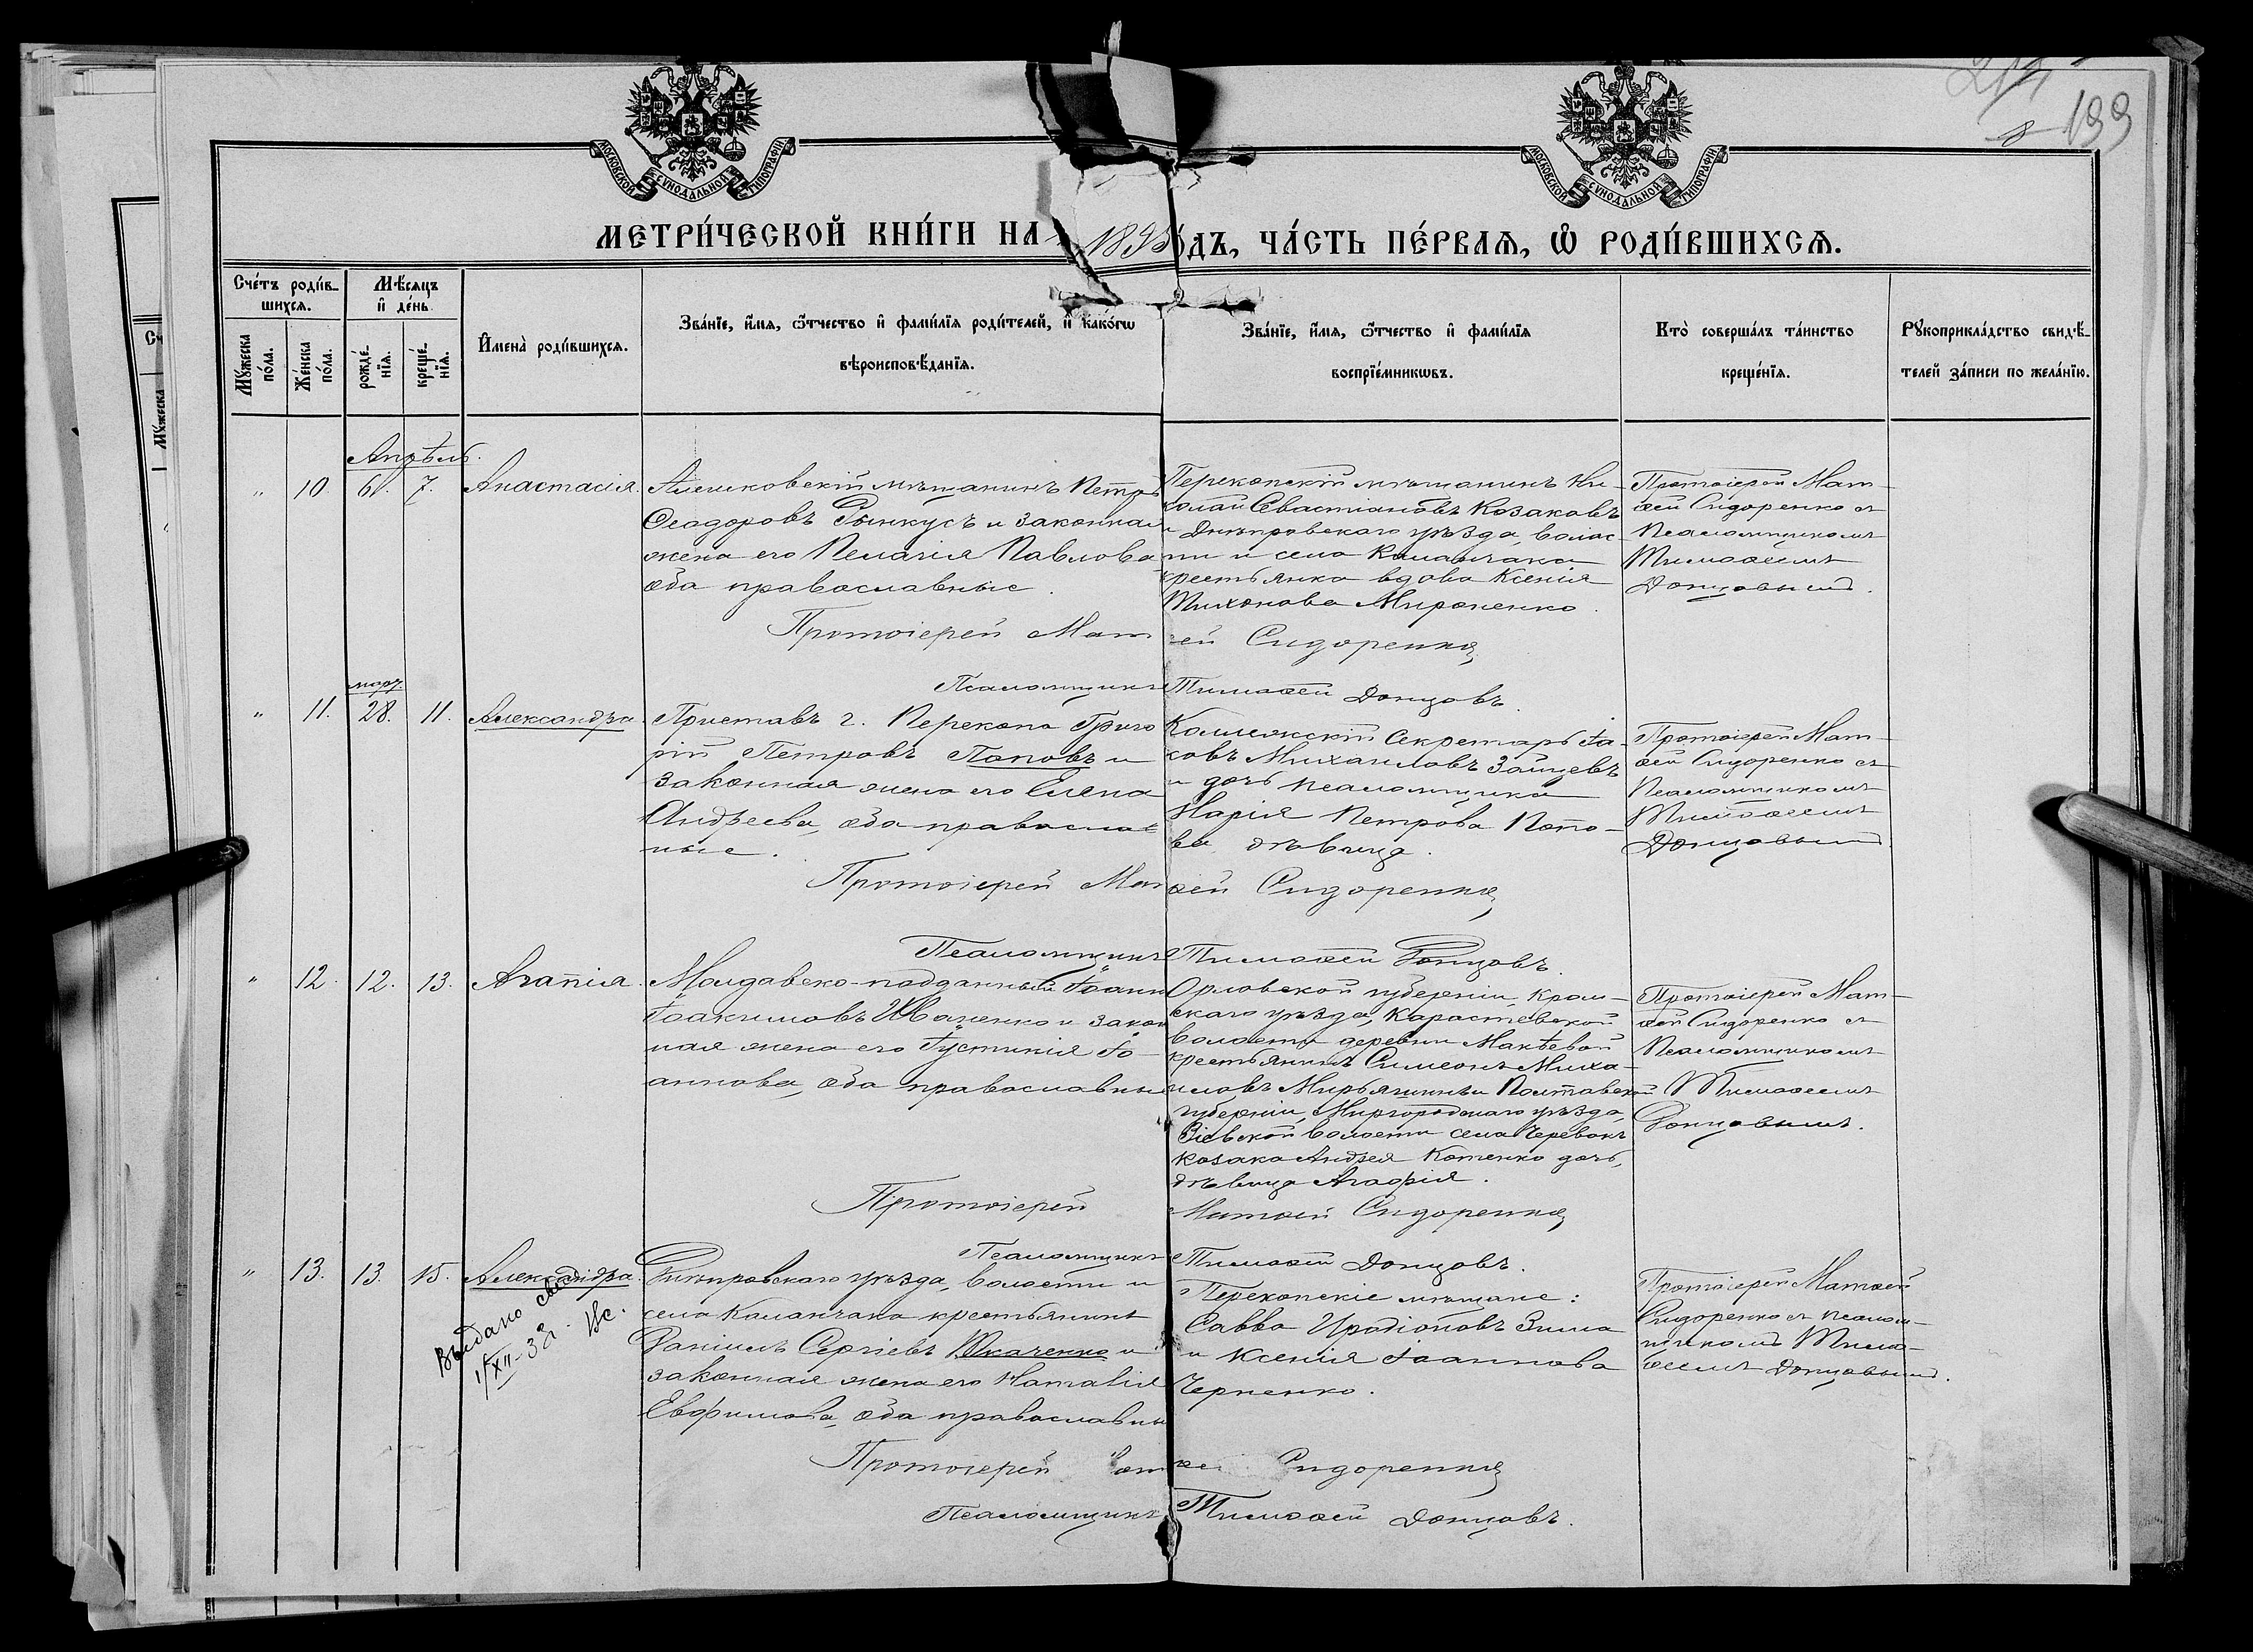 199
МОСКОВСКОЙ СѴНОДАЛЬНОЙ ТИПОГРАФІИ
МОСКОВСКОЙ СѴНОДАЛЬНОЙ ТИПОГРАФІИ
МЕТРИ́ЧЕСКОЙ КНИ́ГИ НА 1895 ОДЪ, ЧА́СТЬ ПЕ́РВАЯ, Ѽ РОДИ́ВШИХСЯ.
Сче́тъ роди́в-
шихся.
Мѣ́сяцъ
и де́нь.
Мꙋ́жеска
по́ла.
Же́нска
по́ла.
рожде́-
нїя.
креще́-
нїя.
И҆мена̀ роди́вшихся.
Зва́нїе, и҆́мя, ѻ҆́тчество и҆ фами́лїя роди́телей, и҆ како́гѡ
вѣроисповѣ́данїя.
Зва́нїе, и҆́мя, ѻ҆́тчество и҆ фами́лїя
воспрїе́мникѡвъ.
Кто̀ соверша́лъ та́инство
креще́нїя.
Рꙋкоприкла́дство свидѣ́-
телей за́писи по жела́нїю.
Апрѣль.
" 10. 6. 7. Анастасія.
Алешковскій мѣщанинъ Петръ
Ѳеодоровъ и законная
жена его Пелагія Павлова,
оба православные.
Перекопскій мѣщанинъ Ни-
колай Севастіановъ Козаковъ
и Днѣпровскаго уѣзда, волос-
ти и села Каланчака
крестьянка вдова Ксенія
Тихонова Мироненко.
Протоіерей Мат-
ѳей Сидоренко съ
Псаломщикомъ
Тимоѳеемъ
Донцовымъ.
Протоіерей Мат ѳей Сидоренко
Псаломщикъ Тимоѳей Донцовъ.
март.
" 11. 28. 11. Александра.
Приставъ г. Перекопа Григо
рій Петровъ Поповъ и
законная жена его Елена
Андреева, оба православ
ные.
Коллежскій Секретарь Іа-
ковъ Михаиловъ Зайцевъ
и дочь псаломщика
Марія Петрова Попо-
ва дѣвица.
Протоіерей Мат-
ѳей Сидоренко съ
Псаломщикомъ
Тимоѳеемъ
Донцовымъ.
Протоіерей Мат ѳей Сидоренко
Псаломщикъ Тимоѳей Донцовъ.
" 12. 12. 13. Агапія.
Молдавско-подданный Іоанн
Іоакимовъ Иваненко и закон
ная жена его Іустинія Іо-
аннова, оба православные
Орловской губерніи, Кром-
скаго уѣзда,
волости деревни Макѣевой
крестьянинъ Симеонъ Миха-
иловъ и Полтавской
губерніи, Миргородскаго уѣзда,
волости села
козака Андрея Котенко дочь,
дѣвица Агафія.
Протоіерей Мат-
ѳей Сидоренко съ
Псаломщикомъ
Тимоѳеемъ
Донцовымъ.
Протоіерей Матѳей Сидоренко
Псаломщикъ Тимоѳей Донцовъ.
" 13. 13. 15. Александра.
Днѣпровскаго уѣзда, волости и
села Каланчака крестьянинъ
Даніилъ Сергіевъ и
законная жена его Наталія
Евфимова, оба православны
Перекопскіе мѣщане:
Савва Иродіоновъ Зима
и Ксенія Іоаннова
Черненко.
Протоіерей Матѳей
Сидоренко съ псалом-
щикомъ Тимо-
ѳеемъ Донцовымъ.
Выдано свид
1/XII-38
Протоіерей ат ѳей Сидоренко
Псаломщикъ Тимоѳей Донцовъ.